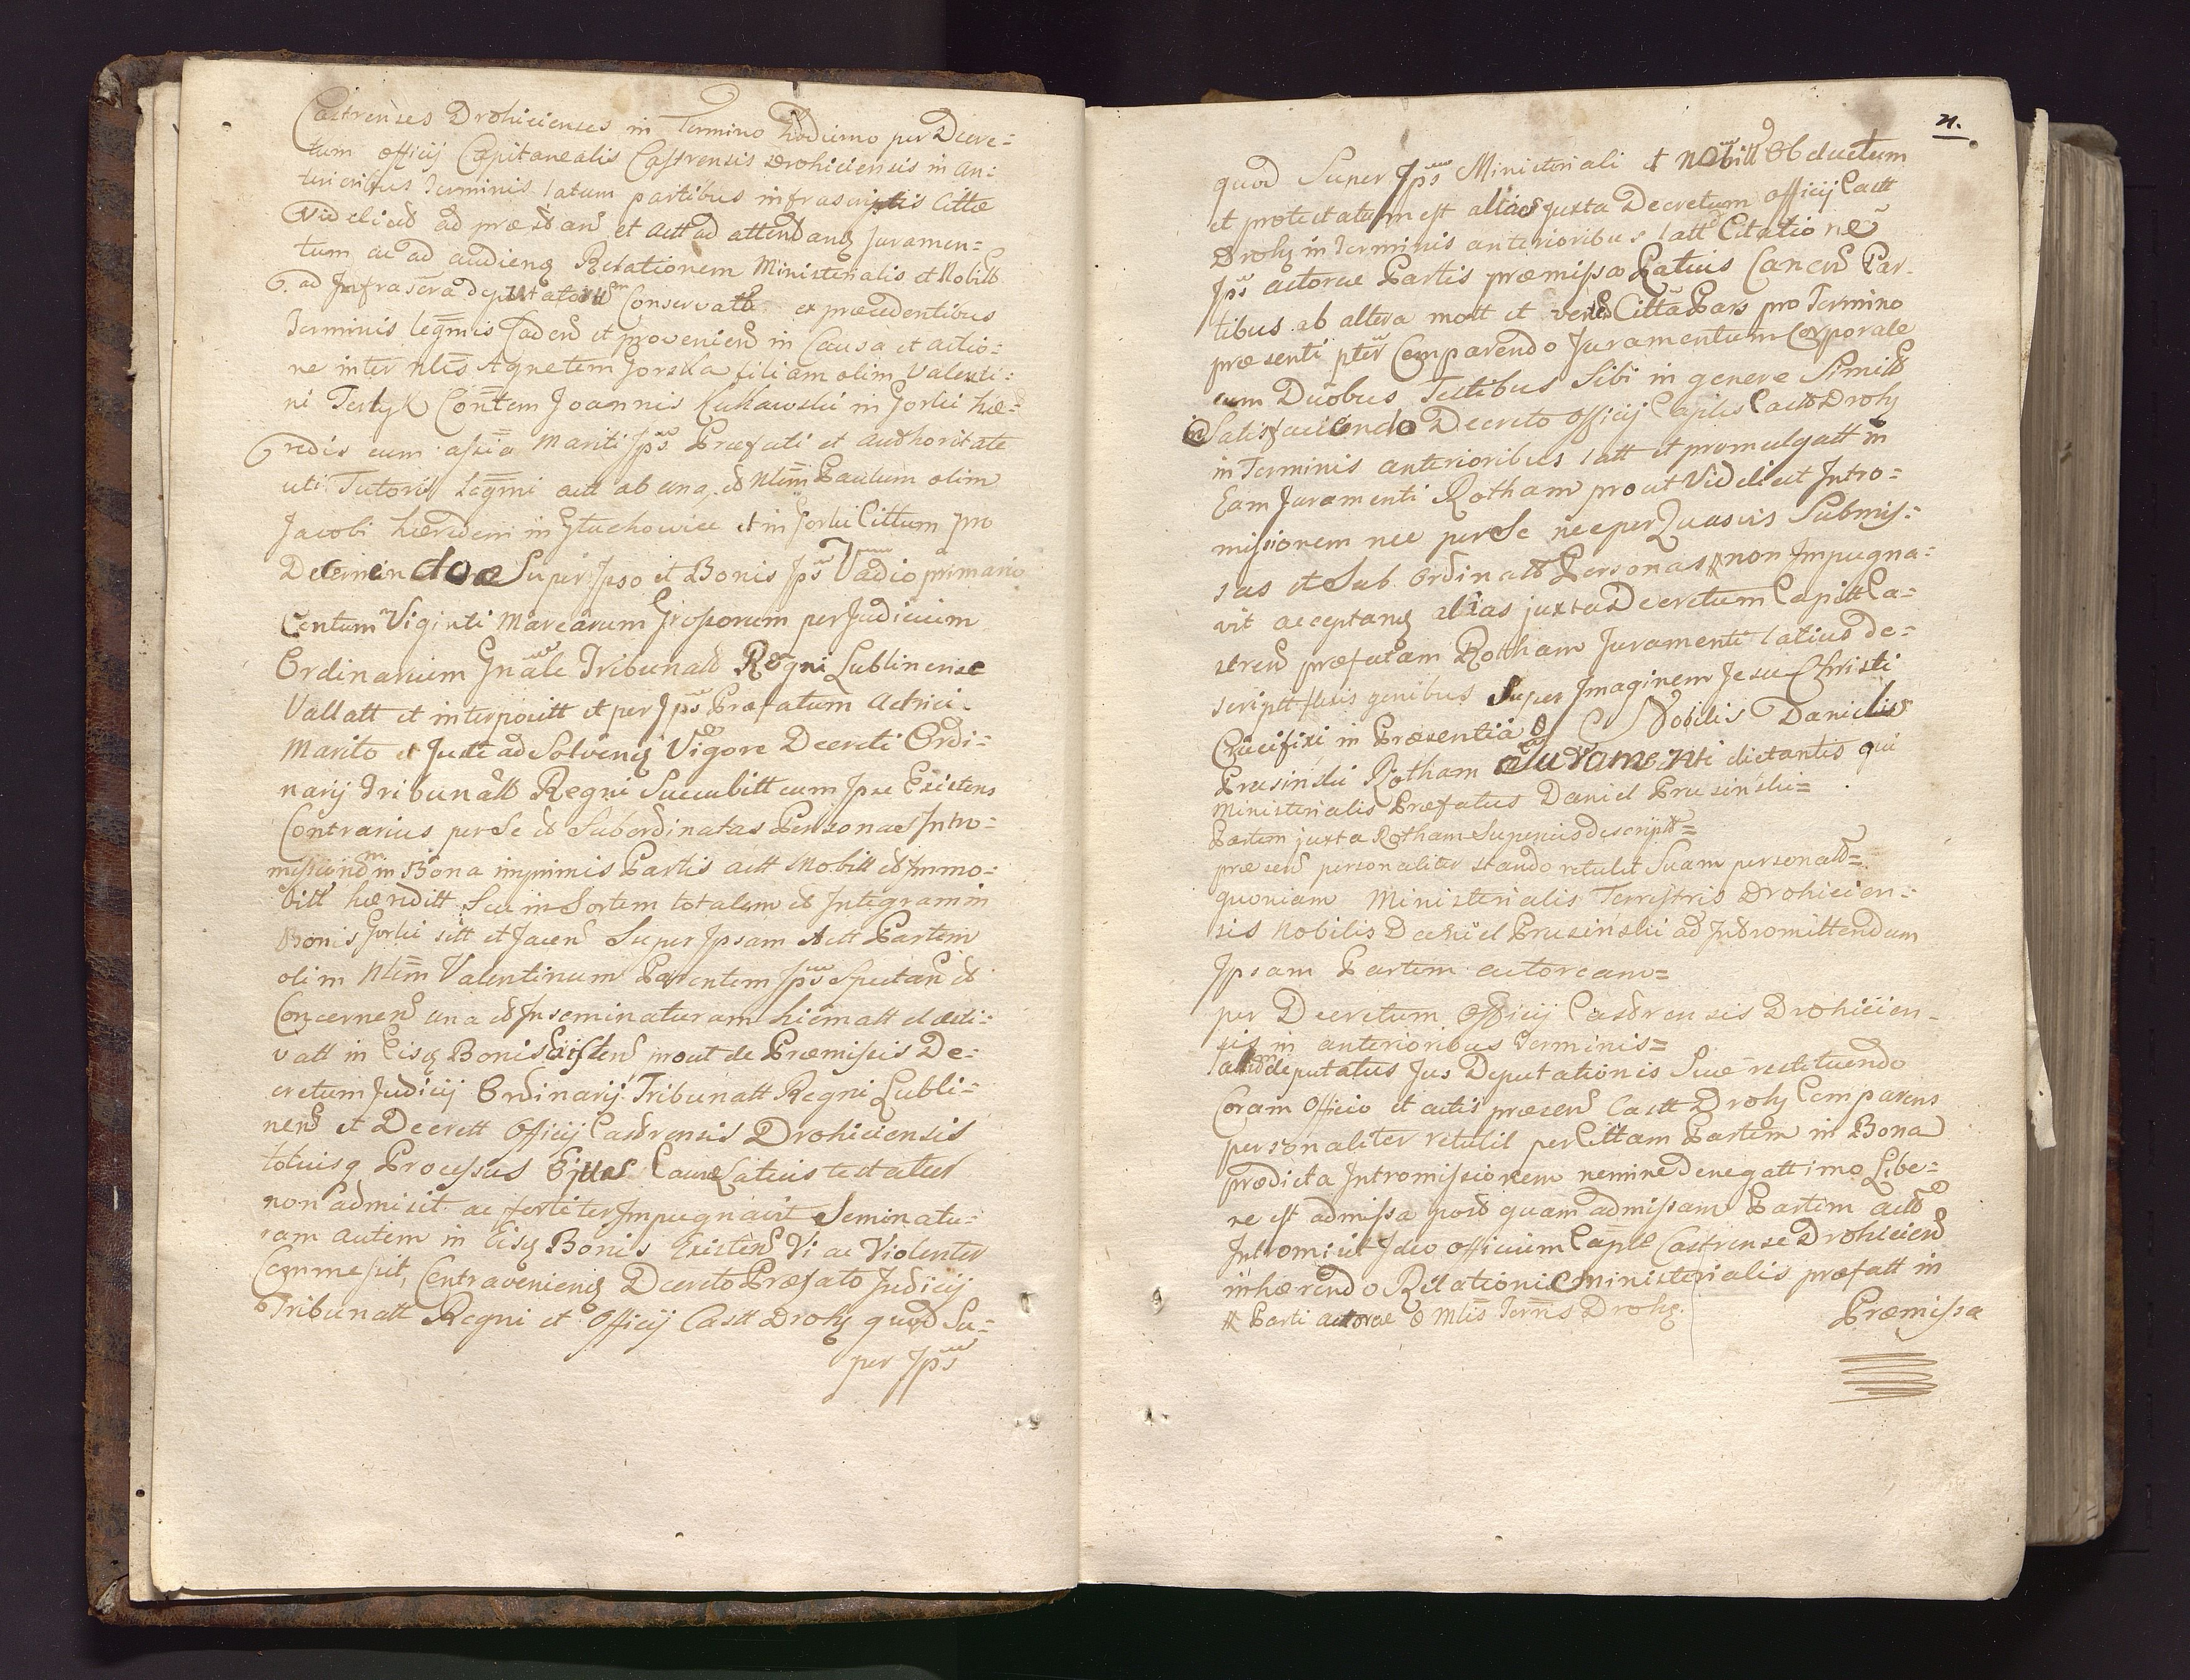 Castrenses Drohicienses in Termino hodierno per Decre=
tum officij Capitanealis Castrensis Drohiciensis in an=
terioribus Terminis latum partibus infrascriptis Cittæ
Videlicet ad præstand et Actt ad attendang Juramen=
tum ac ad audieng Relationem Ministerialis et Nobilis
ad Infrascra deputatorum Conservatt ex præcedentibus
Terminis legmis Cadend et proveniend in Causa et actio=
ne inter Nles Agnetem Gorska filiam olim Valenti=
ni Contem Joannis Kukawski in Gorki hæ=
redis cum assia Mariti Ips Præfati et authoritate
uti Tutoris Legmi actt ab una, et Nlem Paulum olim
Jacobi hæredem in Głuchowice et in Gorki Cittum pro
Decernendo Super Ipso et Bonis Ips Vadio primario
Centum Viginti Marcarum Grossorum per Judicium
Ordinarium Gnale Tribunalis Regni Lublinense
Vallatt et interpositt et per Ips Præfatum Actrici
Marito et Juste ad Solveng Vigore Decreti Ordi=
narij Tribunalis Regni Succubitt cum Ipse Existens
Contrarius per Se et Subordinatas Personas Intro=
missionem in Bona imprimis Partis actt Mobilt et Immo=
bilt hæreditt Seu in Sortem totalem et Integram in
Bonis Gorki sitt et Jacend Super Ipsam Actt Partem
olim Nlem Valentinum Parentem Ips Spectan et
Concernend una et Inseminaturam hiematt et æsti=
vatt in Eisq Bonis Existend prout de Præmissis De=
cretum Judicij Ordinarij Tribunatt Regni Lubli=
nend et Decrett Officij Castrensis Drohiciensis
totusq Processus Ejus Causæ Latius testatur
non admisit ac fortiter Impugnavit Seminatu=
ram autem in Eisq Bonis Existend Vi ac Violenter
Commesit, Contravenieng Decreto Præfato Judicij
Tribunatt Regni et Officij Castt Drohg quod Su=
per Ips
21.
quod Super Ips Ministeriali et Nobili Obductum
et protestatum est alias juxta Decretum officij Castt
Drohg in Terminis anterioribus latt Citatione
Ips actoræ Partis præmissa Latius Canend Par=
tibus ab altera mott et verum Citta Pars pro Termino
præsenti pter Comparendo Juramentum Corporale
cum Duobus Testibus Sibi in genere Simil
Satisfaciendo Decreto Officij Caplis Castt Drohg
in Terminis anterioribus latt et promulgatt in
Eam Juramenti Rotham prout Videlicet Intro=
missionem nec per Se nec per Quasvis Submis=
sas et Sub Ordinatt Personas non Impugna=
vit acceptang alias juxta Decretum Capitt Ca=
strend præfatam Rotham Juramenti latius de=
scriptt flexis genibus Super Imaginem Jesu Christi
Crucifixi in Præsentia Nobilis Danielis
Prusinski Rotham Juramenti dictantis qui
Ministerialis Præfatus Daniel Prusinski=
Partem juxta Rotham Superius descript=
præsend personaliter stando retulit Suam personalt=
quoniam Ministerialis Terrestris Drohicien=
sis Nobilis Daniel Prusinski ad Intromittendum
Ipsam Partem actoream=
per Decretum Officij Castrensis Drohicien=
sis in anterioribus Terminis=
latt deputatus Jus Deputationis Suæ restituendo
Coram Officio et actis præsend Castt Drohg Comparens
personaliter retulit per Cittam Partem in Bona
prædicta Intromissionem nemine denegatt imo Libe=
re est admissa post quam admissam Partem actt
Intromisit Ideo Officium Caple Castrense Drohiciend
inhærendo Relationi Ministerialis præfatt in
Parti actoræ Mlis Terris Drohg.
Præmissa